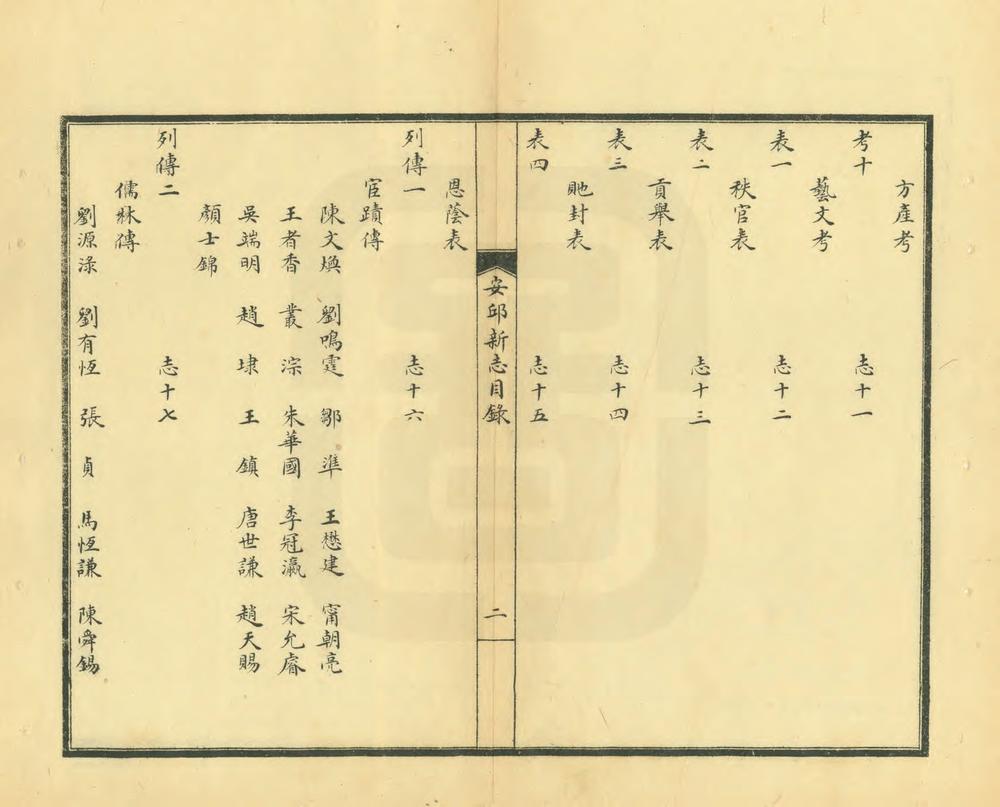 方產考
考十 志十一
藝文考
表一 志十二
秩官表
表二 志十三
貢舉表
表三 志十四
貤封表
表四 志十五
安邱新志目錄 二
恩蔭表
列傳一 志十六
宦蹟傳
陳文煥 劉鳴霆 鄒準 王懋建 甯朝亮
王者香 叢淙 朱華國 李冠瀛 宋允睿
吳端明 趙埭 王鎮 唐世謙 趙天賜
顏士錦
列傳二 志十七
儒林傳
劉源淥 劉有恆 張貞 馬恆謙 陳舜錫